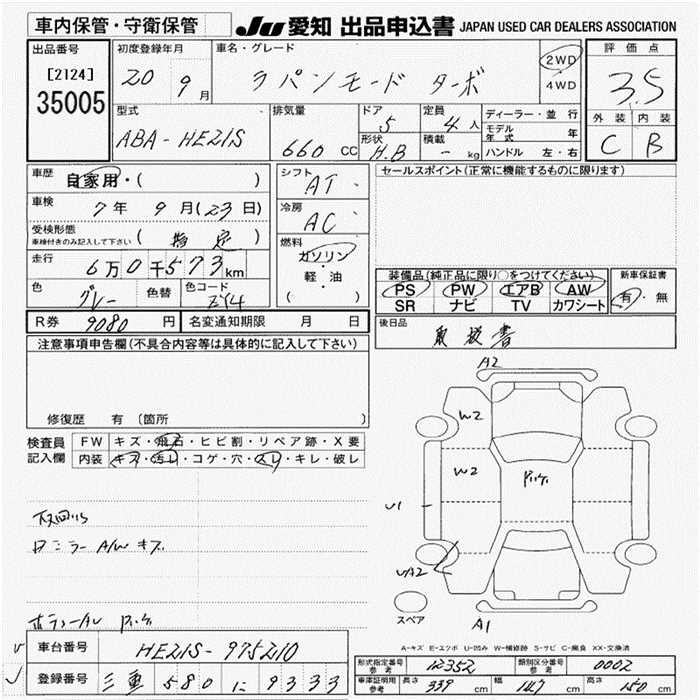 車内保管・守衛保管 JU 愛知 出品申込書 JAPAN USED CAR DEALERS ASSOCIATION
出品番号 初度登録年月 車名・グレード 2WD 4WD 評価点
[2124] 35005 20 9月 ラパンモード ターボ 3.5
型式 ABA-HE21S 排気量 660 CC ドア 5 定員 4人 ディーラー・並行 外装 内装
形状 H.B 積載 - kg モデル年式 年 C B
ハンドル 左・右
車歴 自家用・( ) シフト AT セールスポイント(正常に機能するものに限ります)
車検 7年 9月(23日) 冷房 AC
受検形態 車検付きのみ記入して下さい (指定) 燃料 ガソリン・軽・油 ( )
走行 6万0千573km
装備品(純正品に限り○をつけてください) 新車保証書
色 グレー 色替 色コード ZY4 PS PW エアB AW 有・無
SR ナビ TV カワシート
R券 9080円 名変通知期限 月 日 後日品 取扱書
注意事項申告欄(不具合内容等は具体的に記入して下さい)
修復歴 有 (箇所 )
検査員記入欄 FW キズ・飛石・ヒビ割・リペア跡・X要
内装 キズ・汚レ・コゲ・穴・スレ・キレ・破レ
A2
W2
W2
U1
A1
スペア
A-キズ E-エクボ U-凹み W-補修跡 S-サビ C-腐食 XX-交換済
車台番号 HE21S-975210
登録番号 三重 580 に 9333
型式指定番号 参考 12352 類別区分番号 参考 0002
車庫証明用 参考 長さ 339 cm 幅 147 cm 高さ 150 cm